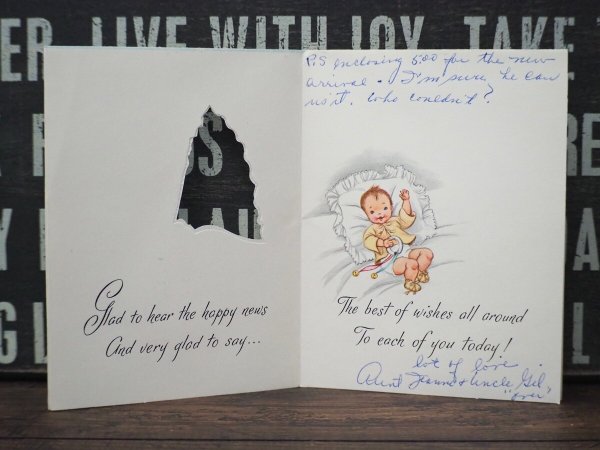 ER LIVE WITH JOY, TAKE T
P.S enclosing 5.00 for the new
arrival. I'm sure he can
us it. who couldn't?
US
Glad to hear the happy news
And very glad to say...
The best of wishes all around
To each of you today!
lot of love
Aunt Jeanne & Uncle Gil
"over"